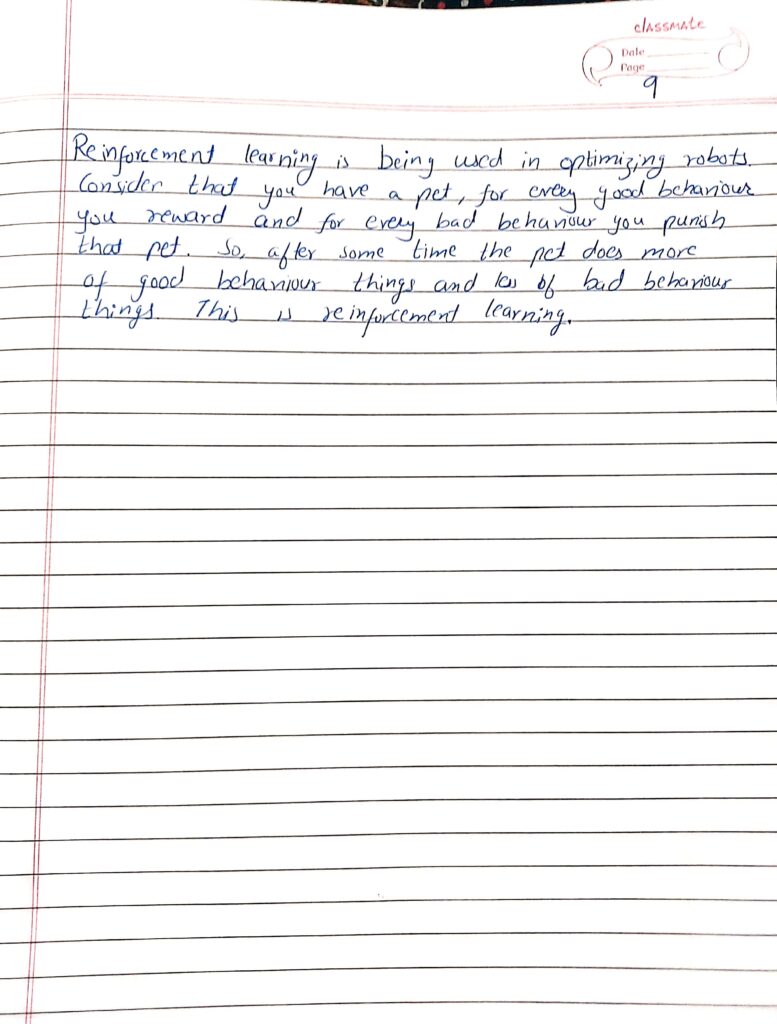 classmate
Date
Page
9
Reinforcement learning is being used in optimizing robots.
Consider that you have a pet, for every good behaviour
you reward and for every bad behaviour you punish
that pet. So, after some time the pet does more
of good behaviour things and less of bad behaviour
things. This is reinforcement learning.